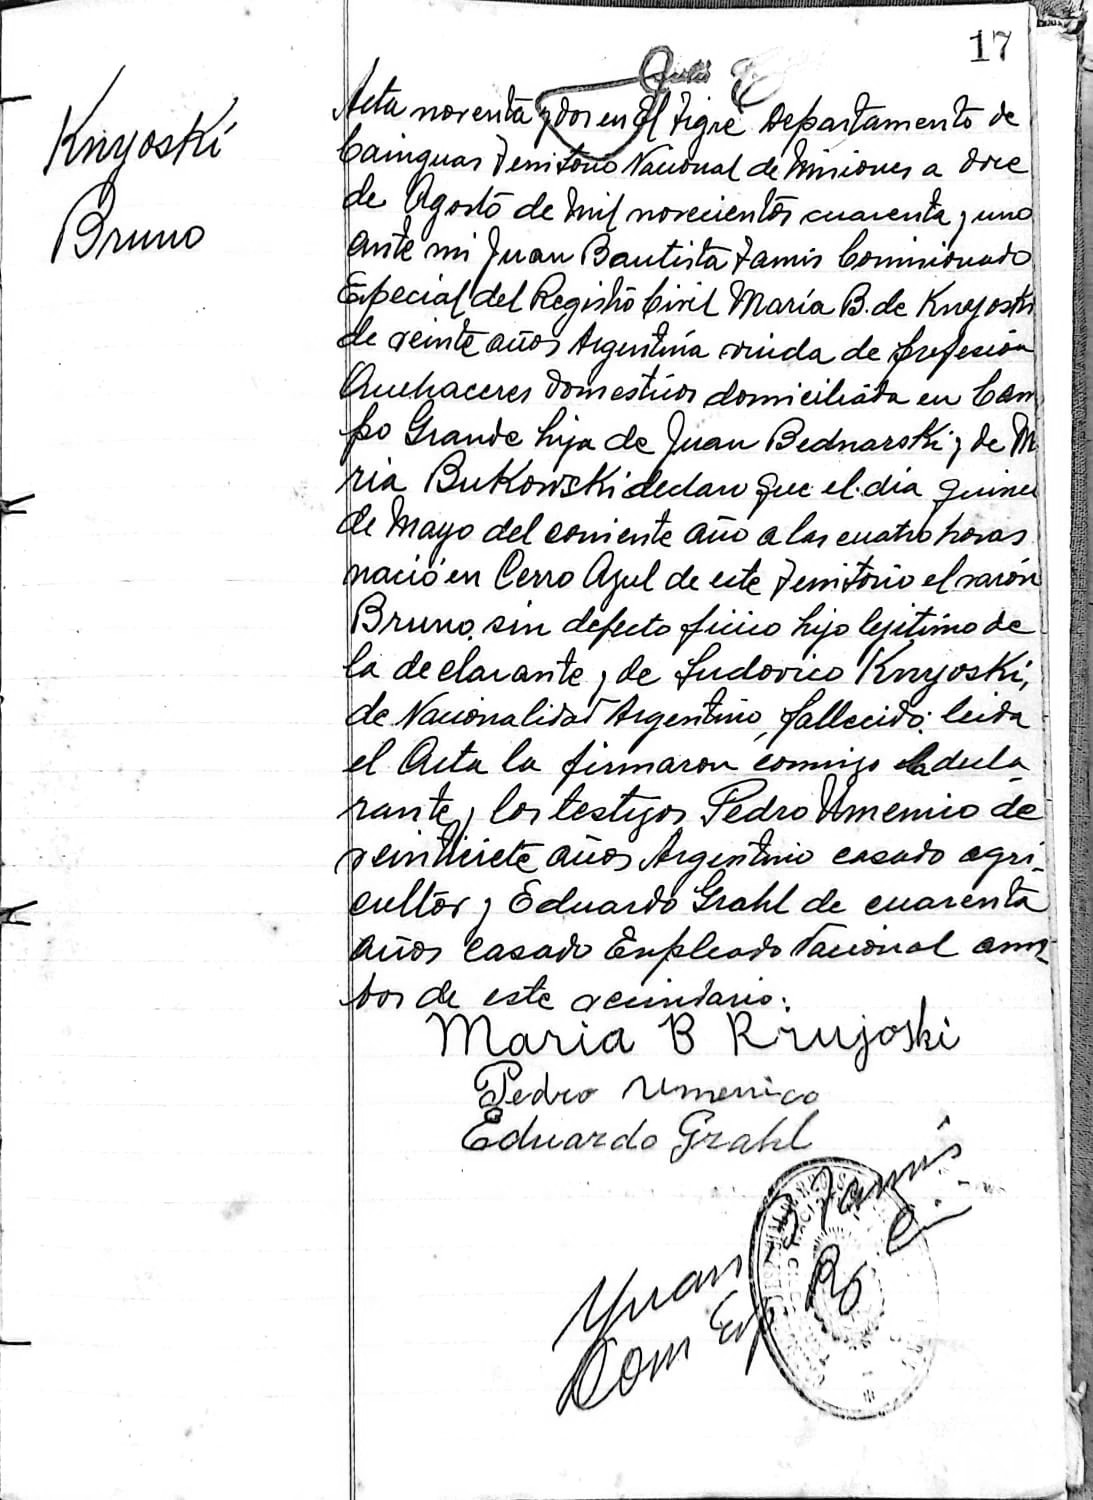 17
Knyoski
Bruno
Acta noventa y dos en El Tigre Departamento de
Cainguas Territorio Nacional de Misiones a doce
de Agosto de mil novecientos cuarenta y uno
ante mi Juan Bautista Jamis Comisionado
Especial del Registro Civil María B. de Knyoski
de veinte años Argentina viuda de profesión
Quehaceres domesticos domiciliada en Cam
po Grande hija de Juan Bednarski y de M
ria Bukowski declaro que el día quince
de Mayo del corriente año a las cuatro horas
nació en Cerro Azul de este Territorio el varón
Bruno sin defecto fisico hijo legitimo de
la declarante y de Ludovico Knyoski,
de Nacionalidad Argentino, fallecido: leida
el Acta la firmaron conmigo la decla
rante y los testigos Pedro Umenico de
veintisiete años Argentino casado agri-
cultor y Eduardo Grahl de cuarenta
años casado Empleado Nacional am-
bos de este vecindario:
Maria B Krujoski
Pedro Umenico
Eduardo Grahl
Juan B Jamis
Com Esp R. C.